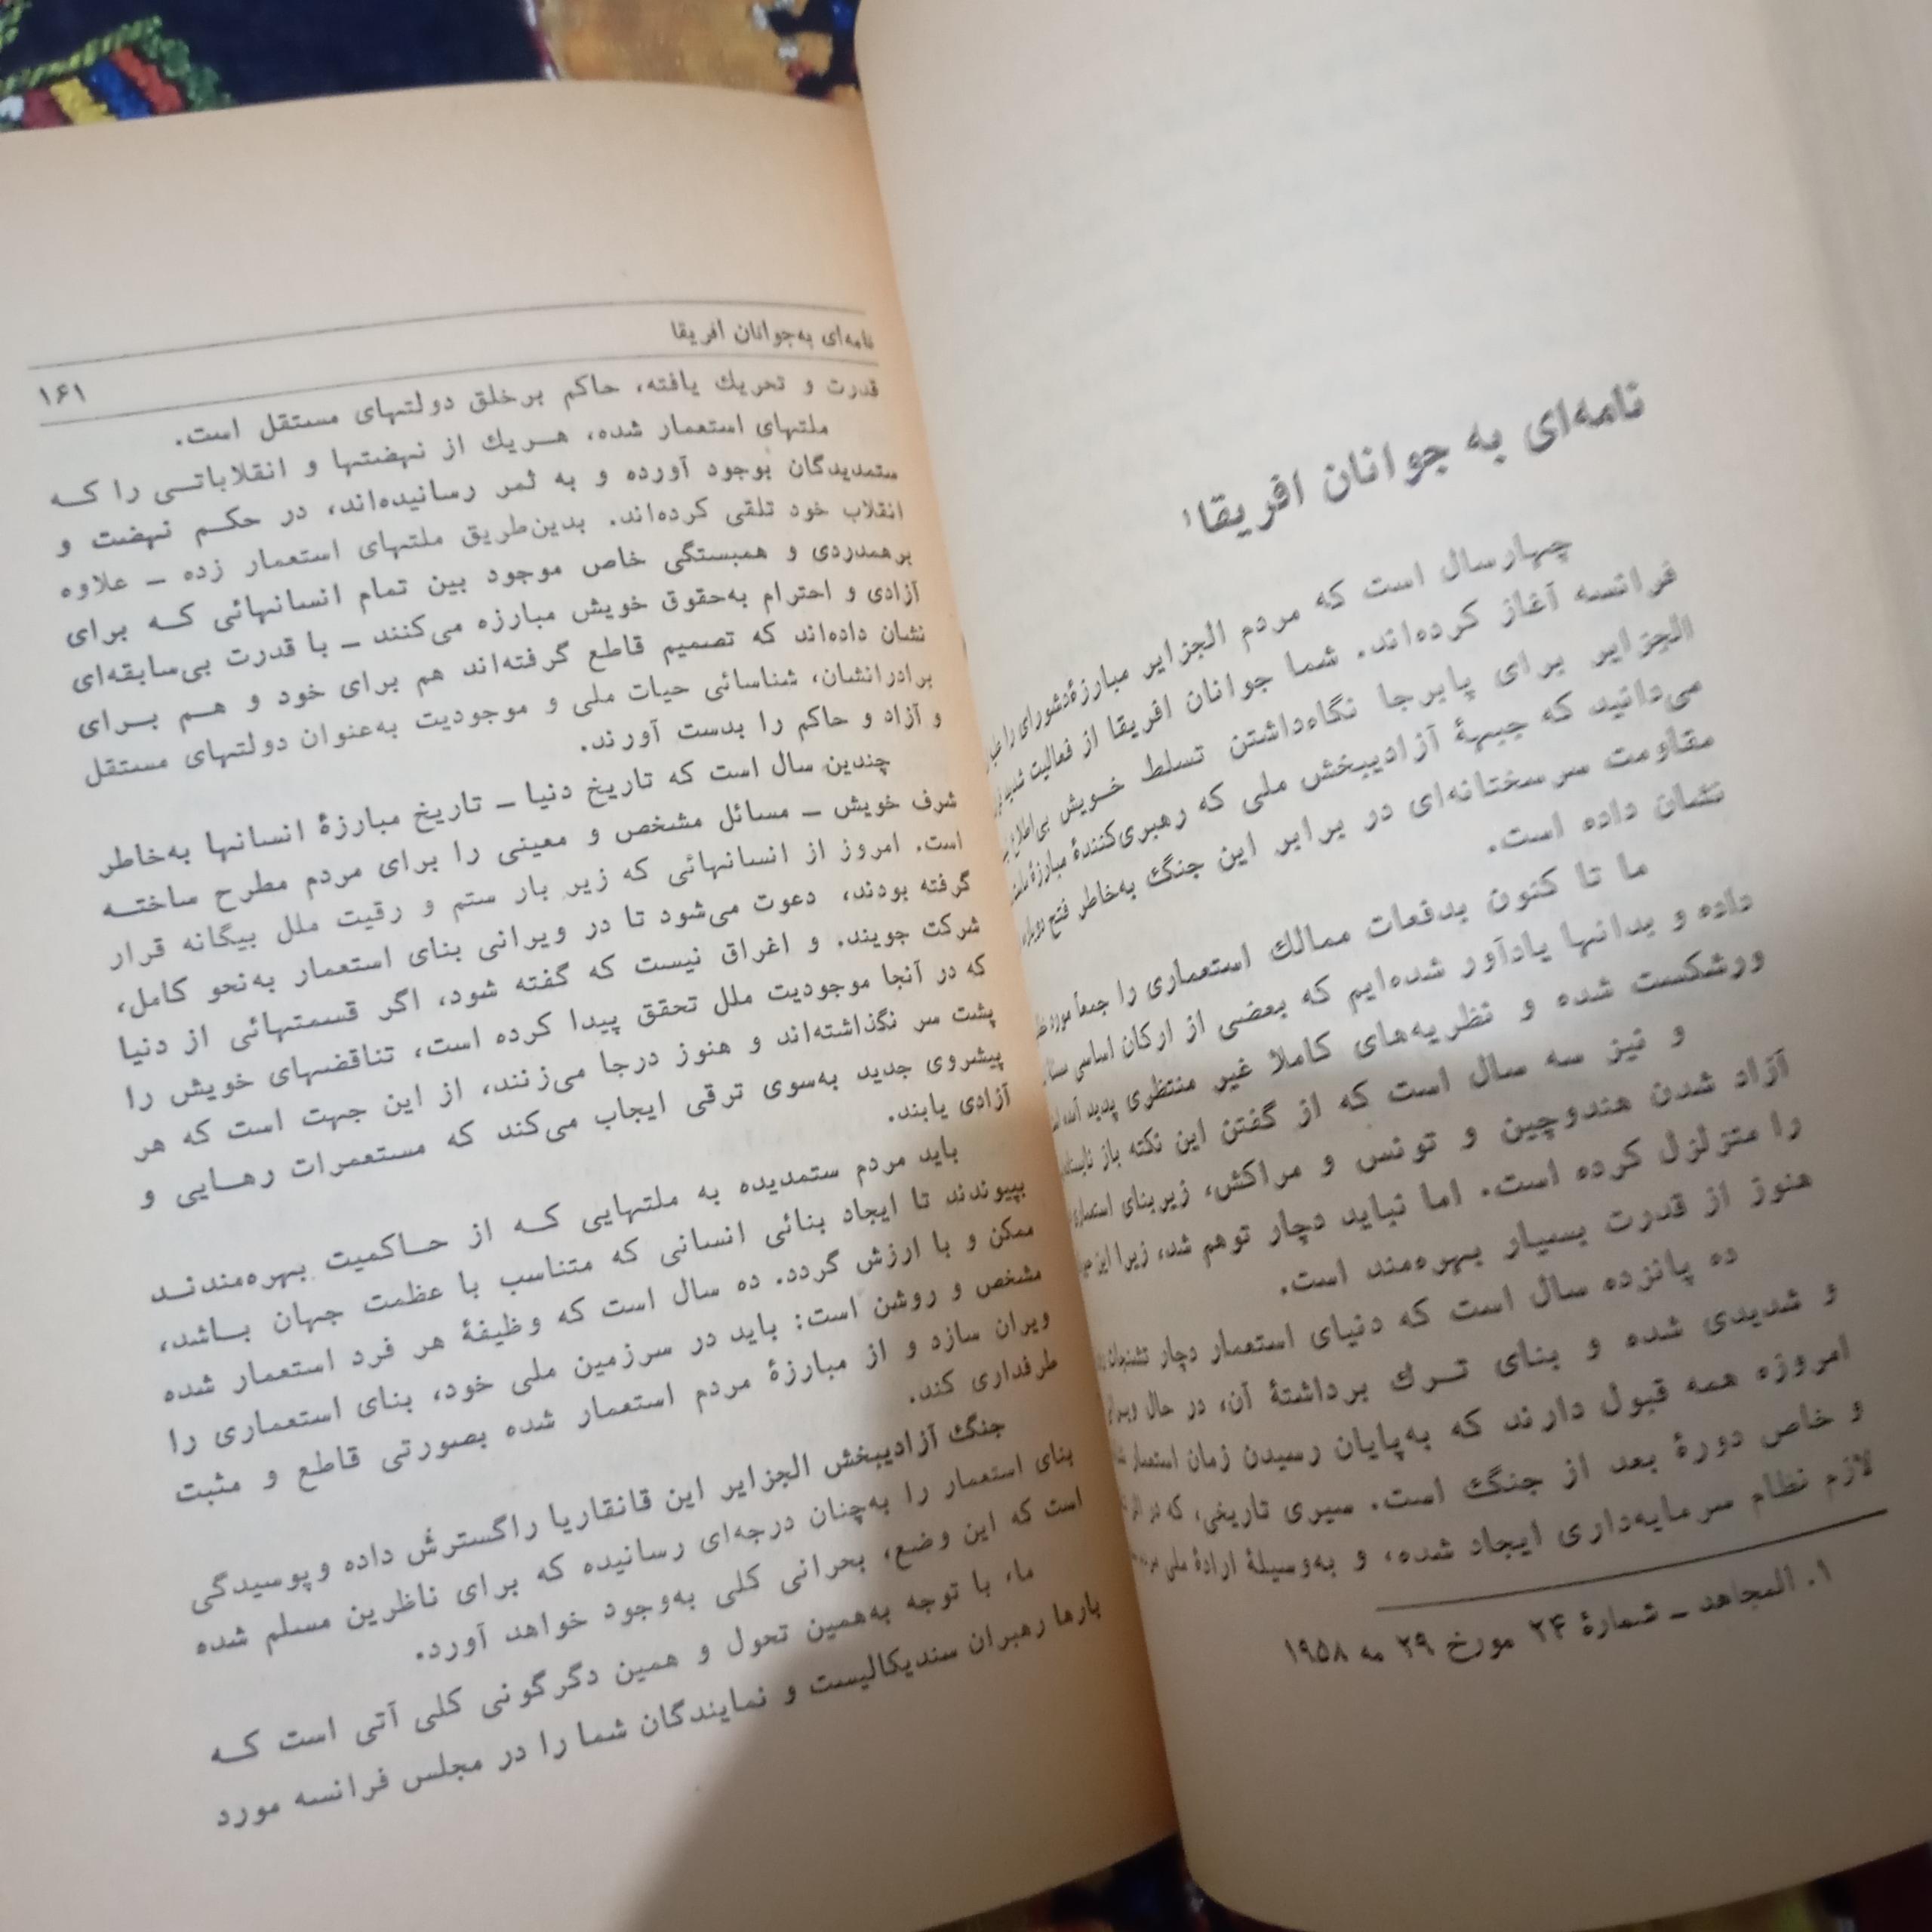 نامه‌ای به جوانان افریقا۱
چهارسال است که مردم الجزایر مبارزهٔ دشواری را
فرانسه آغاز کرده‌اند. شما جوانان افریقا از فعالیت
الجزایر برای پابرجا نگاه‌داشتن تسلط خویش
می‌دانید که جبههٔ آزادیبخش ملی که رهبری‌کنندهٔ مبارزهٔ
مقاومت سرسختانه‌ای در برابر این جنگ به‌خاطر فتح دوباره
نشان داده است.
ما تا کنون بدفعات ممالك استعماری را جمعاً مورد
داده و بدانها یادآور شده‌ایم که بعضی از ارکان اساسی
ورشکست شده و نظریه‌های کاملا غیر منتظری پدید
و نیز سه سال است که از گفتن این نکته باز
آزاد شدن هندوچین و تونس و مراکش، زیربنای
را متزلزل کرده است. اما نباید دچار توهم شد، زیرا این
هنوز از قدرت بسیار بهره‌مند است.
ده پانزده سال است که دنیای استعمار دچار
و شدیدی شده و بنای ترك برداشتهٔ آن، در حال
امروزه همه قبول دارند که به‌پایان رسیدن زمان استعمار
و خاص دورهٔ بعد از جنگ است. سیری تاریخی، که در
لازم نظام سرمایه‌داری ایجاد شده، و به‌وسیلهٔ ارادهٔ ملی
۱. المجاهد ــ شمارهٔ ۲۴ مورخ ۲۹ مه ۱۹۵۸
نامه‌ای به‌جوانان افریقا
۱۶۱
قدرت و تحریك یافته، حاکم برخلق دولتهای مستقل است.
ملتهای استعمار شده، هریك از نهضتها و انقلاباتی را که
ستمدیدگان بوجود آورده و به ثمر رسانیده‌اند، در حکم نهضت و
انقلاب خود تلقی کرده‌اند. بدین‌طریق ملتهای استعمار زده ــ علاوه
برهمدردی و همبستگی خاص موجود بین تمام انسانهائی که برای
آزادی و احترام به‌حقوق خویش مبارزه می‌کنند ــ با قدرت بی‌سابقه‌ای
نشان داده‌اند که تصمیم قاطع گرفته‌اند هم برای خود و هم برای
برادرانشان، شناسائی حیات ملی و موجودیت به‌عنوان دولتهای مستقل
و آزاد و حاکم را بدست آورند.
چندین سال است که تاریخ دنیا ــ تاریخ مبارزهٔ انسانها به‌خاطر
شرف خویش ــ مسائل مشخص و معینی را برای مردم مطرح ساخته
است. امروز از انسانهائی که زیر بار ستم و رقیت ملل بیگانه قرار
گرفته بودند، دعوت می‌شود تا در ویرانی بنای استعمار به‌نحو کامل،
شرکت جویند. و اغراق نیست که گفته شود، اگر قسمتهائی از دنیا
که در آنجا موجودیت ملل تحقق پیدا کرده است، تناقضهای خویش را
پشت سر نگذاشته‌اند و هنوز درجا می‌زنند، از این جهت است که هر
پیشروی جدید به‌سوی ترقی ایجاب می‌کند که مستعمرات رهایی و
آزادی یابند.
باید مردم ستمدیده به ملتهایی که از حاکمیت بهره‌مندند
بپیوندند تا ایجاد بنائی انسانی که متناسب با عظمت جهان باشد،
ممکن و با ارزش گردد. ده سال است که وظیفهٔ هر فرد استعمار شده
مشخص و روشن است: باید در سرزمین ملی خود، بنای استعماری را
ویران سازد و از مبارزهٔ مردم استعمار شده بصورتی قاطع و مثبت
طرفداری کند.
جنگ آزادیبخش الجزایر این قانقاریا راگسترش داده وپوسیدگی
بنای استعمار را به‌چنان درجه‌ای رسانیده که برای ناظرین مسلم شده
است که این وضع، بحرانی کلی به‌وجود خواهد آورد.
ما، با توجه به‌همین تحول و همین دگرگونی کلی آتی است که
بارها رهبران سندیکالیست و نمایندگان شما را در مجلس فرانسه مورد